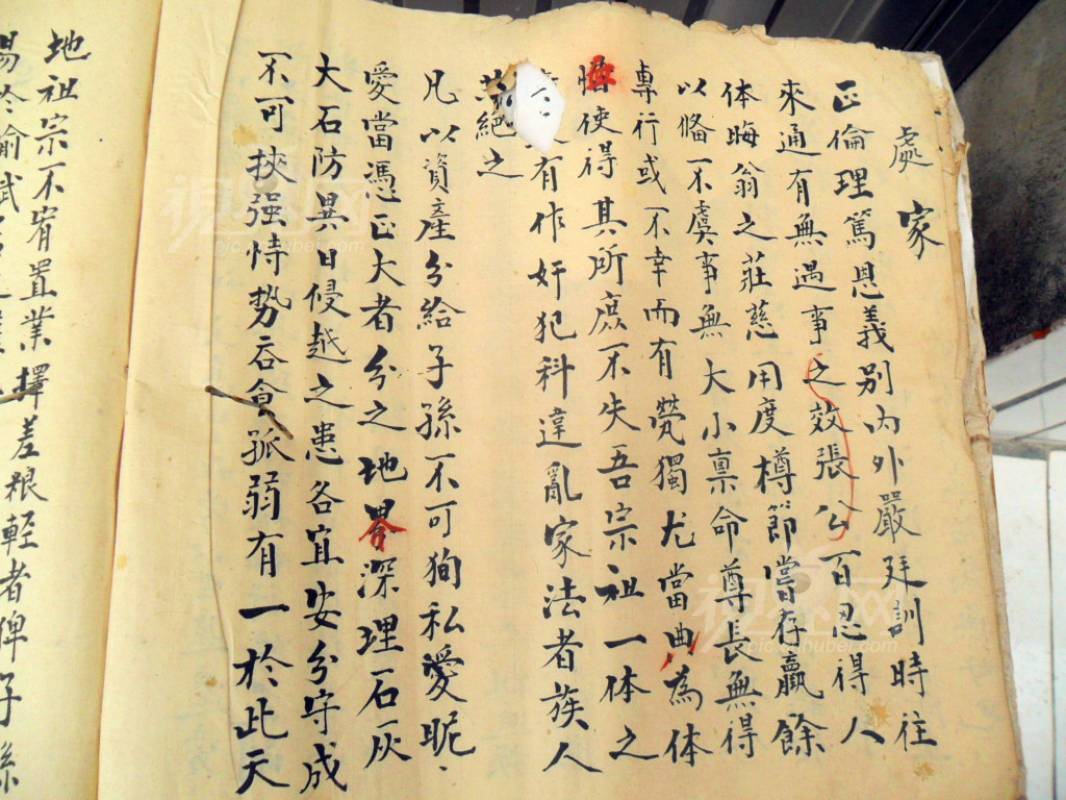 處家
正倫理篤恩義別內外嚴廷訓時往
來通有無遇事之效張公百忍得人
体晦翁之莊慈用度樽節嘗存贏餘
以俻不虞事無大小禀命尊長無得
專行或不幸而有煢獨尤當曲為体
恤使得其所庶不失吾宗祖一体之
有作奸犯科違亂家法者族人
共絕之
凡以資產分給子孫不可狥私愛昵
愛當憑正大者分之地界深理石灰
大石防異日侵越之患各宜安分守成
不可挾强恃势吞食孤弱有一於此天
地祖宗不宥置業擇差粮輕者俾子孫
易於輸賦
視界网
pic.cnhubei.com
視界网
pic.cnhubei.com